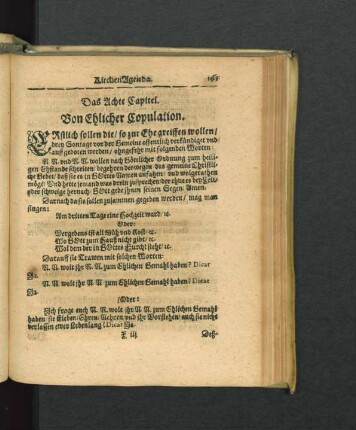 KirchenAgenda. 165
Das Achte Capitel.
Von Ehlicher Copulation.
ERstlich sollen die/ so zur Ehe greiffen wollen/
drey Sontage vor der Gemeine offentlich verkündiget vnd
auffgeboten werden/ ohngefehr mit folgenden Worten:
N. N. vnd N. N. wollen nach Göttlicher Ordnung zum heili-
gen Ehstande schreiten/ begehren derwegen des gemeine Christli-
che Gebet/ daß sie es in Gottes Namen anfahen/ vnd wolgerathen
möge: Vnd hette jemand was drein zusprechen/ der thu es bey Zeit/
oder schweige hernach/ Gott gebe jhnen seinen Segen/ Amen.
Darnach da sie sollen zusammen gegeben werden/ mag man
singen:
Am dritten Tage eine Hochzeit ward/ ꝛc.
Oder:
Vergebens ist all Müh vnd Kost/ ꝛc.
Wo Gott zum Hauß nicht gibt/ ꝛc.
Wol dem der in Gottes Furcht steht/ ꝛc.
Darauff sie Trawen mit solchen Worten:
N. N. wolt jhr N. N. zum Ehlichen Gemahl haben? Dicat
Ja.
N. N. wolt jhr N. N. zum Ehlichen Gemahl haben? Dicat
Ja.
Oder:
Ich frage euch N. N. wolt jhr N. N. zum Ehlichen Gemahl
haben/ sie Lieben/ Ehren/ Nehren vnd jhr Vorstehen/ auch sie nicht
verlassen ewer Lebenlang? Dicat Ja.
X iij Deß-